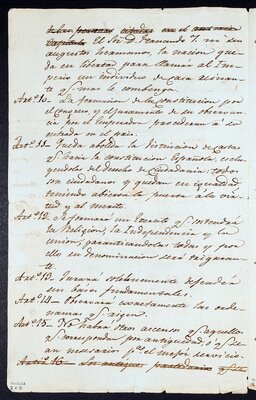 de las personas citadas en el
capitulo El Sr. D. Fernando 7º ó sus
augustos hermanos, la nacion que-
da en libertad para llamar al Im-
perio un individuo de Casa reinan-
te q.e mas le combenga.
Art.º 10 La formacion de la Constitucion por
el Congreso, y el juramento de su observan-
cia por el Emperador precederan á su
entrada en el pais.
Art.º 11 Queda abolida la distincion de Castas
q.e hacia la constitucion Española, exclu-
yendolos del derecho de Ciudadania: todos
son ciudadanos y quedan en igualdad
teniendo abierta la puerta á la vir-
tud y al merito.
Art.º 12 Se formará un Exercito q.e sostendrá
la Religion, la Independencia y la
Union, garantizandolas todas y por
ello su denominacion será trigaran-
te.
Art.º 13 Jurará solemnemente defender
las bases fundamentales.
Art.º 14 Observará exactamente las orde-
nanzas q.e rigen.
Art.º 15 No habrá otros ascensos q.e aquellos
q.e correspondan por antiguedad ó q.e se-
an necesarios p.a el mejor servicio.
Art.º 16